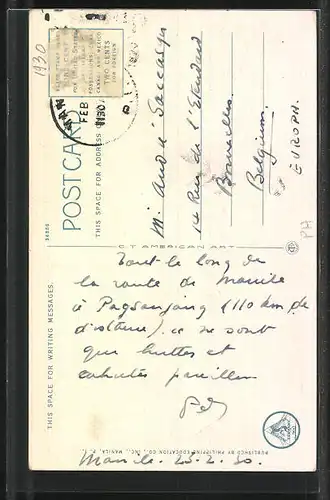 1930
PLACE STAMP HERE
ONE CENT
FOR UNITED STATES
POSSESSIONS
CANADA AND MEXICO
TWO CENTS
FOR FOREIGN
FEB
1930
POSTCARD
THIS SPACE FOR ADDRESS
34856
M. André Saccasyn
14 Rue de l'Etendard
Bruxelles.
Belgium.
EUROPA.
PH
C.T. AMERICAN ART
THIS SPACE FOR WRITING MESSAGES.
Tout le long de
la route de Manile
à Pagsanjang (110 km de
distance) ce ne sont
que huttes et
cahutes pareilles
PUBLISHED BY PHILIPPINE EDUCATION CO., INC., MANILA, P. I.
Manile. 23.2.30.